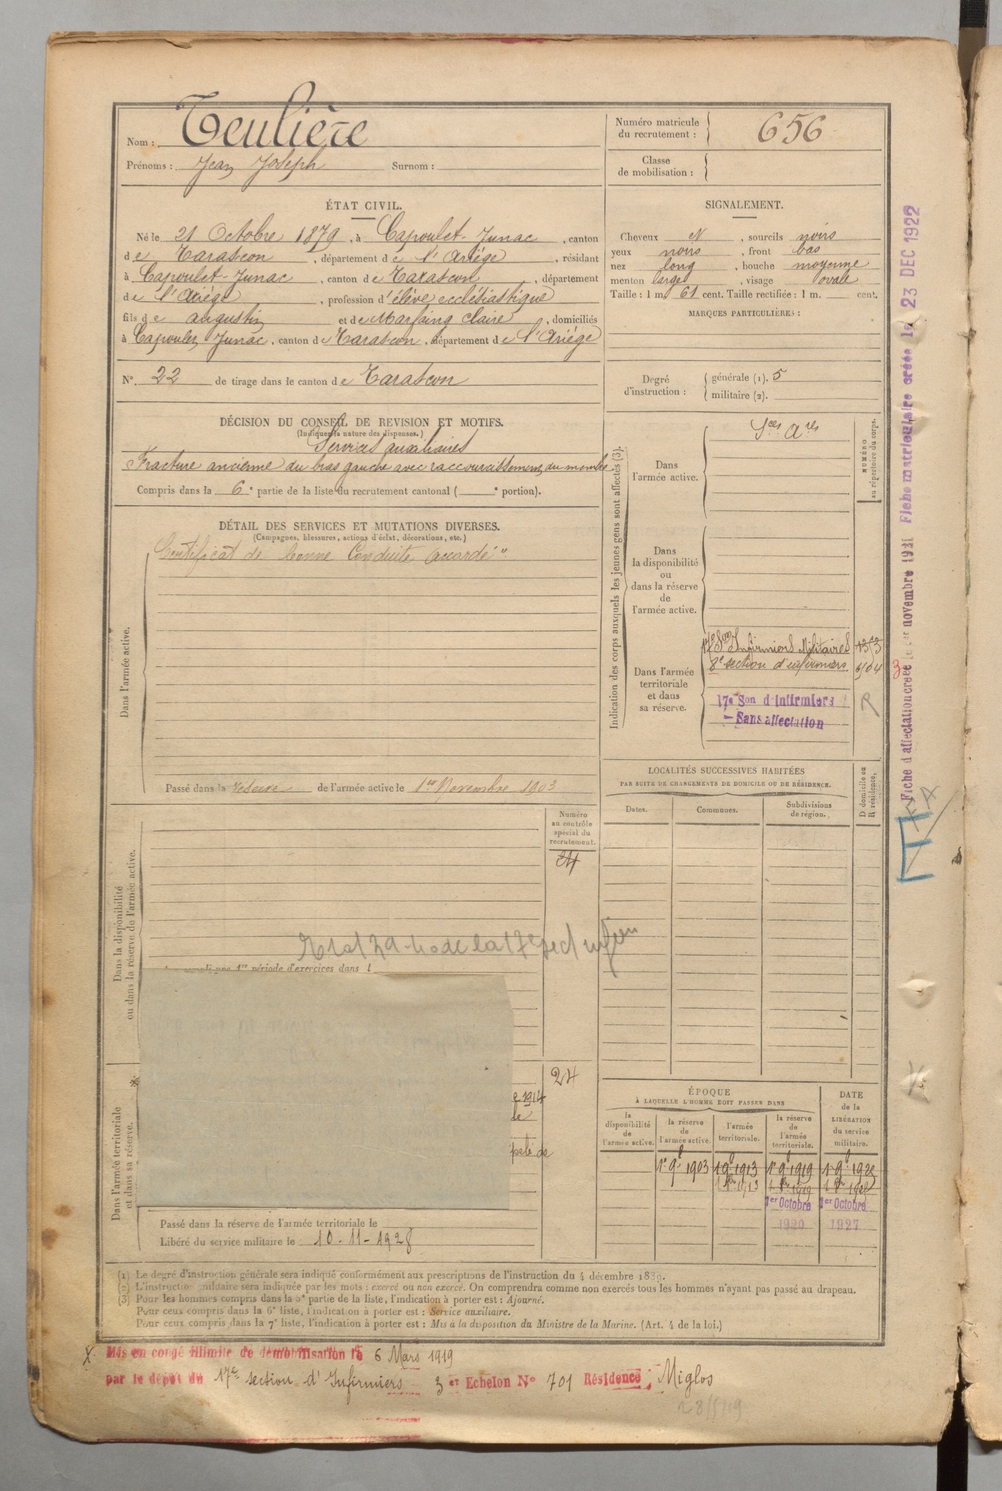 Nom : Teulière
Prénoms : Jean Joseph Surnom :
Numéro matricule du recrutement : 656
Classe de mobilisation :
ÉTAT CIVIL.
Né le 21 Octobre 1879, à Capoulet-Junac, canton
de Tarascon, département de l'Ariège, résidant
à Capoulet-Junac, canton de Tarascon, département
de l'Ariège, profession d'élève ecclésiastique
fils de Augustin et de Marfaing Claire, domiciliés
à Capoulet Junac, canton de Tarascon, département de l'Ariège
N° 22 de tirage dans le canton de Tarascon
SIGNALEMENT.
Cheveux N, sourcils noirs
yeux noirs, front bas
nez long, bouche moyenne
menton large, visage ovale
Taille : 1 m. 61 cent. Taille rectifiée : 1 m. cent.
MARQUES PARTICULIÈRES :
Degré d'instruction : générale (1). 5
militaire (2).
DÉCISION DU CONSEIL DE REVISION ET MOTIFS.
(Indiquer la nature des dispenses.)
Services auxiliaires
Fracture ancienne du bras gauche avec raccourcissement du membre
Compris dans la 6e partie de la liste du recrutement cantonal ( e portion).
DÉTAIL DES SERVICES ET MUTATIONS DIVERSES.
(Campagnes, blessures, actions d'éclat, décorations, etc.)
Dans l'armée active.
Certificat de bonne Conduite "accordé"
Passé dans la réserve de l'armée active le 1er Novembre 1903
Indication des corps auxquels les jeunes gens sont affectés (3).
NUMÉRO au répertoire du corps.
Dans l'armée active.
Sces Ares
Dans la disponibilité ou dans la réserve de l'armée active.
Dans l'armée territoriale et dans sa réserve.
17e Son Infirmiers Militaires
8e section d'infirmiers
17e Son d'Infirmiers
- Sans affectation
R
LOCALITÉS SUCCESSIVES HABITÉES
PAR SUITE DE CHANGEMENTS DE DOMICILE OU DE RÉSIDENCE.
Dates.
Communes.
Subdivisions de région.
D domicile ou R résidence.
Dans la disponibilité ou dans la réserve de l'armée active.
Numéro au contrôle spécial du recrutement.
24
période d'exercices dans l
Dans l'armée territoriale et dans sa réserve.
24
1914
Passé dans la réserve de l'armée territoriale le
Libéré du service militaire le 10-11-1928
ÉPOQUE
À LAQUELLE L'HOMME DOIT PASSER DANS
la disponibilité de l'armée active.
la réserve de l'armée active.
l'armée territoriale.
la réserve de l'armée territoriale.
DATE de la LIBÉRATION du service militaire.
1er Octobre 1920
1er Octobre 1927
(1) Le degré d'instruction générale sera indiqué conformément aux prescriptions de l'instruction du 4 décembre 1889.
(2) L'instruction militaire sera indiquée par les mots : exercé ou non exercé. On comprendra comme non exercés tous les hommes n'ayant pas passé au drapeau.
(3) Pour les hommes compris dans la 5e partie de la liste, l'indication à porter est : Ajourné.
Pour ceux compris dans la 6e liste, l'indication à porter est : Service auxiliaire.
Pour ceux compris dans la 7e liste, l'indication à porter est : Mis à la disposition du Ministre de la Marine. (Art. 4 de la loi.)
Mis en congé illimité de démobilisation le 6 Mars 1919
par le dépôt du 17e section d'Infirmiers 3e Echelon N° 701 Résidence : Miglos
Fiche d'affectation créée le 1er novembre 1931 Fiche matriculaire créée le 23 DEC 1922